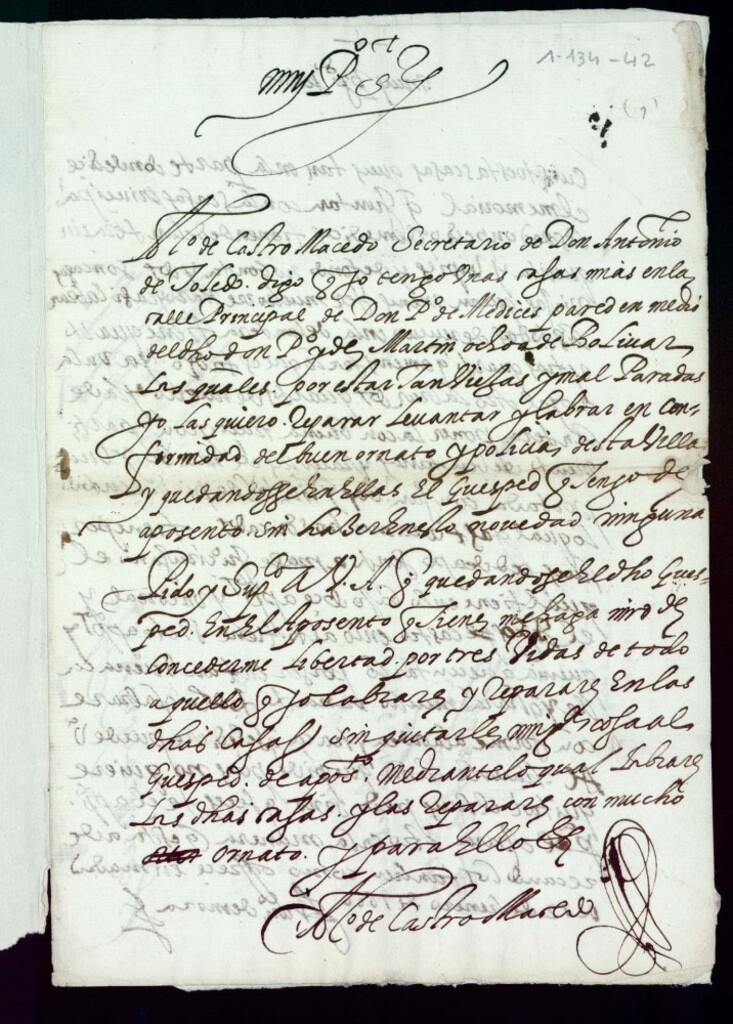 1-134-42
muy Pº Sʳ
Alº de Castro Macedo Secretario de Don Antonio
de Toledo. digo q yo tengo Unas casas mias en la
calle Principal de Don Pº de Medices pared en medio
del dho don Pº y de Martin ochoa de Bolivar
Las quales por estar Tan Viejas y mal Paradas
yo. Las quiero. Reparar Levantar y labrar en con-
formidad del buen ornato y policia desta Villa
y quedandosse En Ellas El Guesped q Tengo de
aposento sin haber En esto novedad ninguna
Pido y Supᶜᵒ A V. A. q quedandose El dho Gues-
ped. En El Aposento q Tiene me haga mrd de
Concederme Libertad. por tres Vidas de todo
aquello q yo labrare y reparare En las
dhas Casas sin quitarle ningᵃ cosa al
Guesped. de aposᵗᵒ. mediante lo qual labrare
Las dhas casas. y las reparare con mucho
ornato. y para Ello Ec
Alº de Castro Macedo